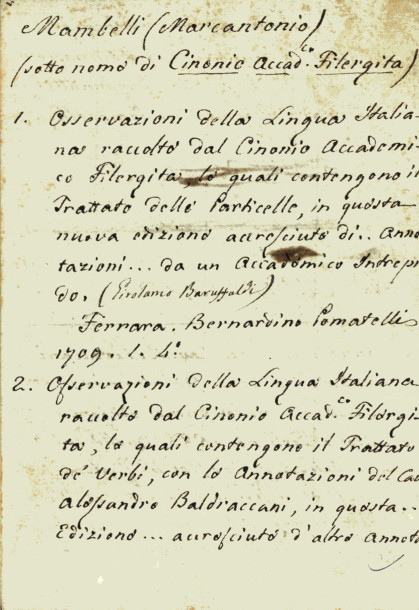 Mambelli (Marcantonio)
(sotto nome di Cinonio Accad.co Filergita)
1. Osservazioni della Lingua Italia-
na raccolte dal Cinonio Accademi-
co Filergita, le quali contengono il
Trattato delle Particelle, in questa
nuova edizione accresciute di.. Anno
tazioni... da un Accademico Intrepi
do. (Girolamo Baruffaldi)
Ferrara. Bernardino Pomatelli
1709. 1. 4.º
2. Osservazioni della Lingua Italiana
raccolte dal Cinonio Accad.co Filergi-
ta, le quali contengono il Trattato
de' Verbi, con le Annotazioni del Cav
Alessandro Baldraccani, in questa..
Edizione... accresciute d'altre Annot